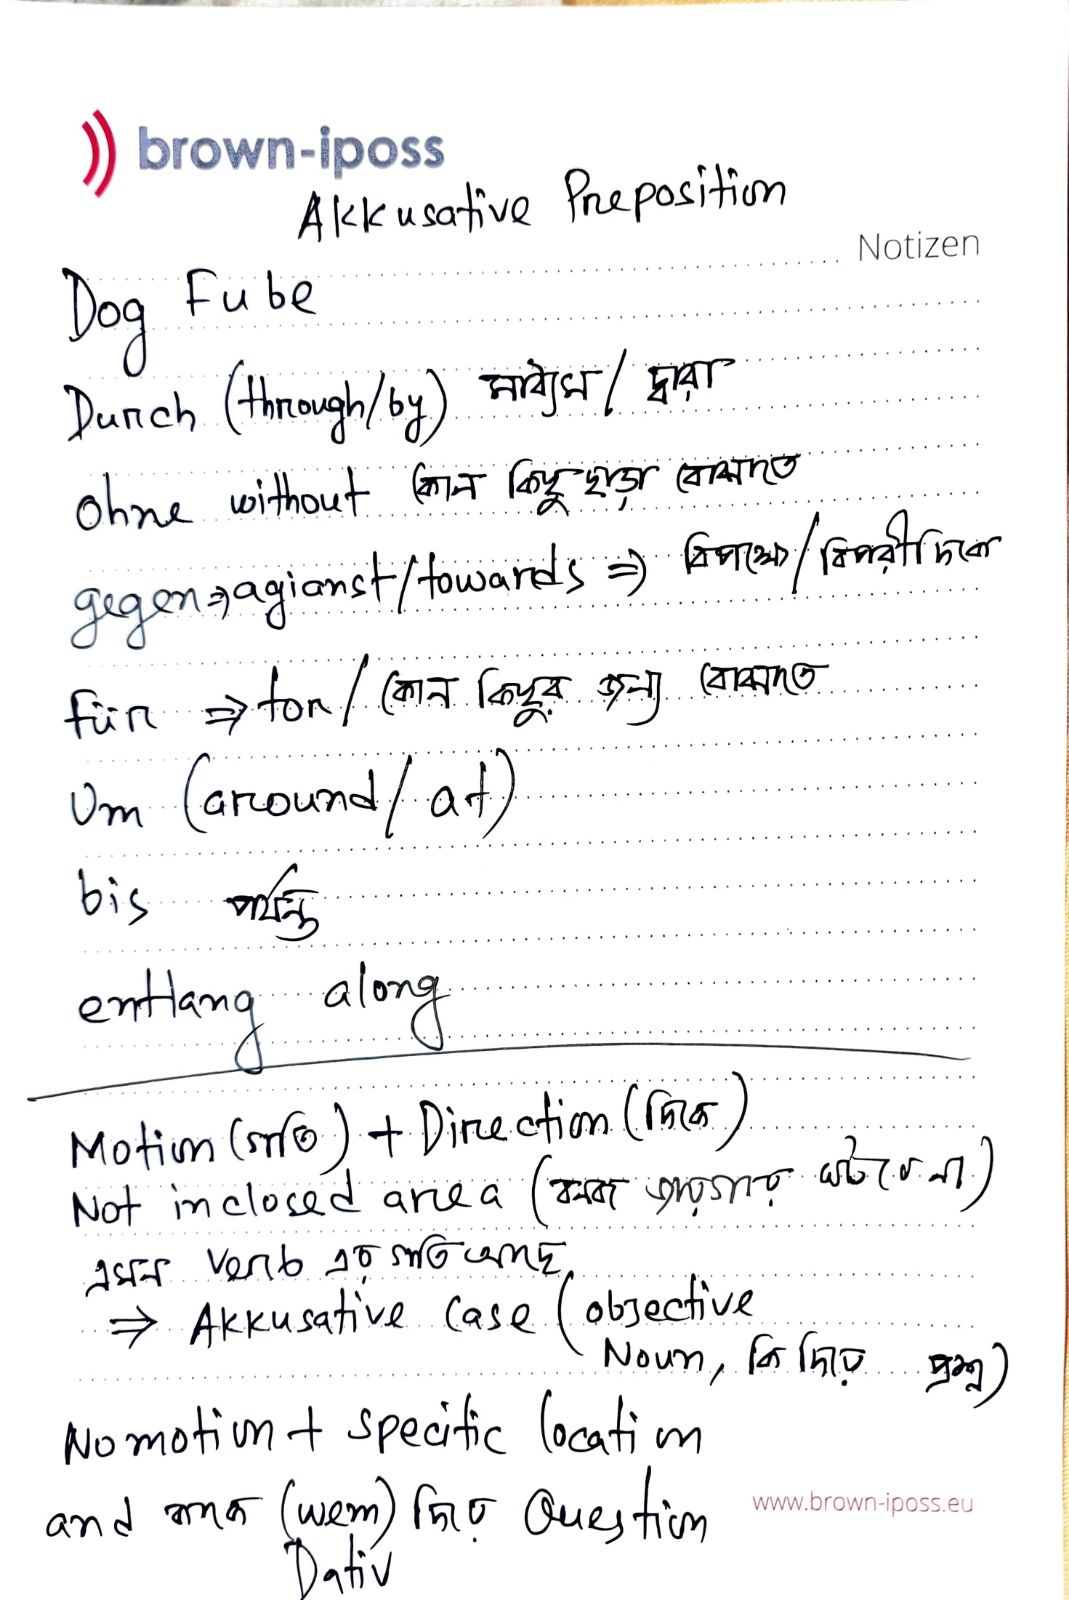 brown-iposs
Akkusative Preposition
Notizen
Dog Fube
Durch (through/by) মাধ্যমে / দ্বারা
Ohne without কোন কিছু ছাড়া বোঝাতে
gegen ⇒ agianst/towards ⇒ বিপক্ষে/বিপরীত দিকে
für ⇒ for / কোন কিছুর জন্য বোঝাতে
Um (around/ at)
bis পর্যন্ত
entlang along
Motion (গতি) + Direction (দিকে)
Not inclosed area (বদ্ধ জায়গায় ঘটবে না)
এমন verb এর গতি আছে
⇒ Akkusative Case (objective
Noun, কি দিয়ে প্রশ্ন)
No motion + specific location
and কাকে (wem) দিয়ে Question
www.brown-iposs.eu
Dativ